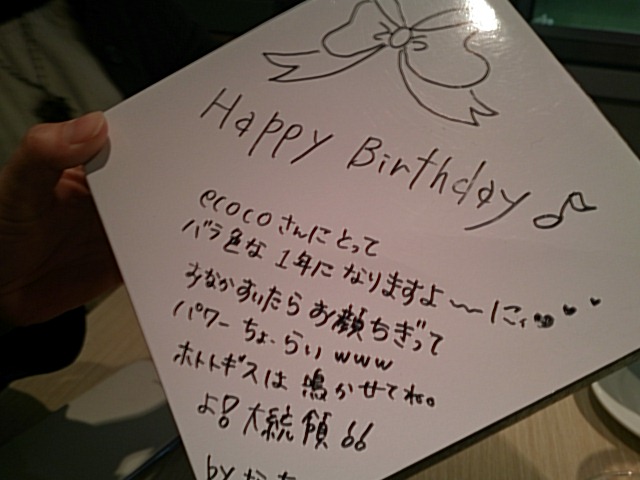 Happy Birthday♪
ecocoさんにとって
バラ色な1年になりますよ〜に
おなかすいたらお顔ちぎって
パワーちょーらいwww
ホトトギスは鳴かせてね。
よ!大統領
by